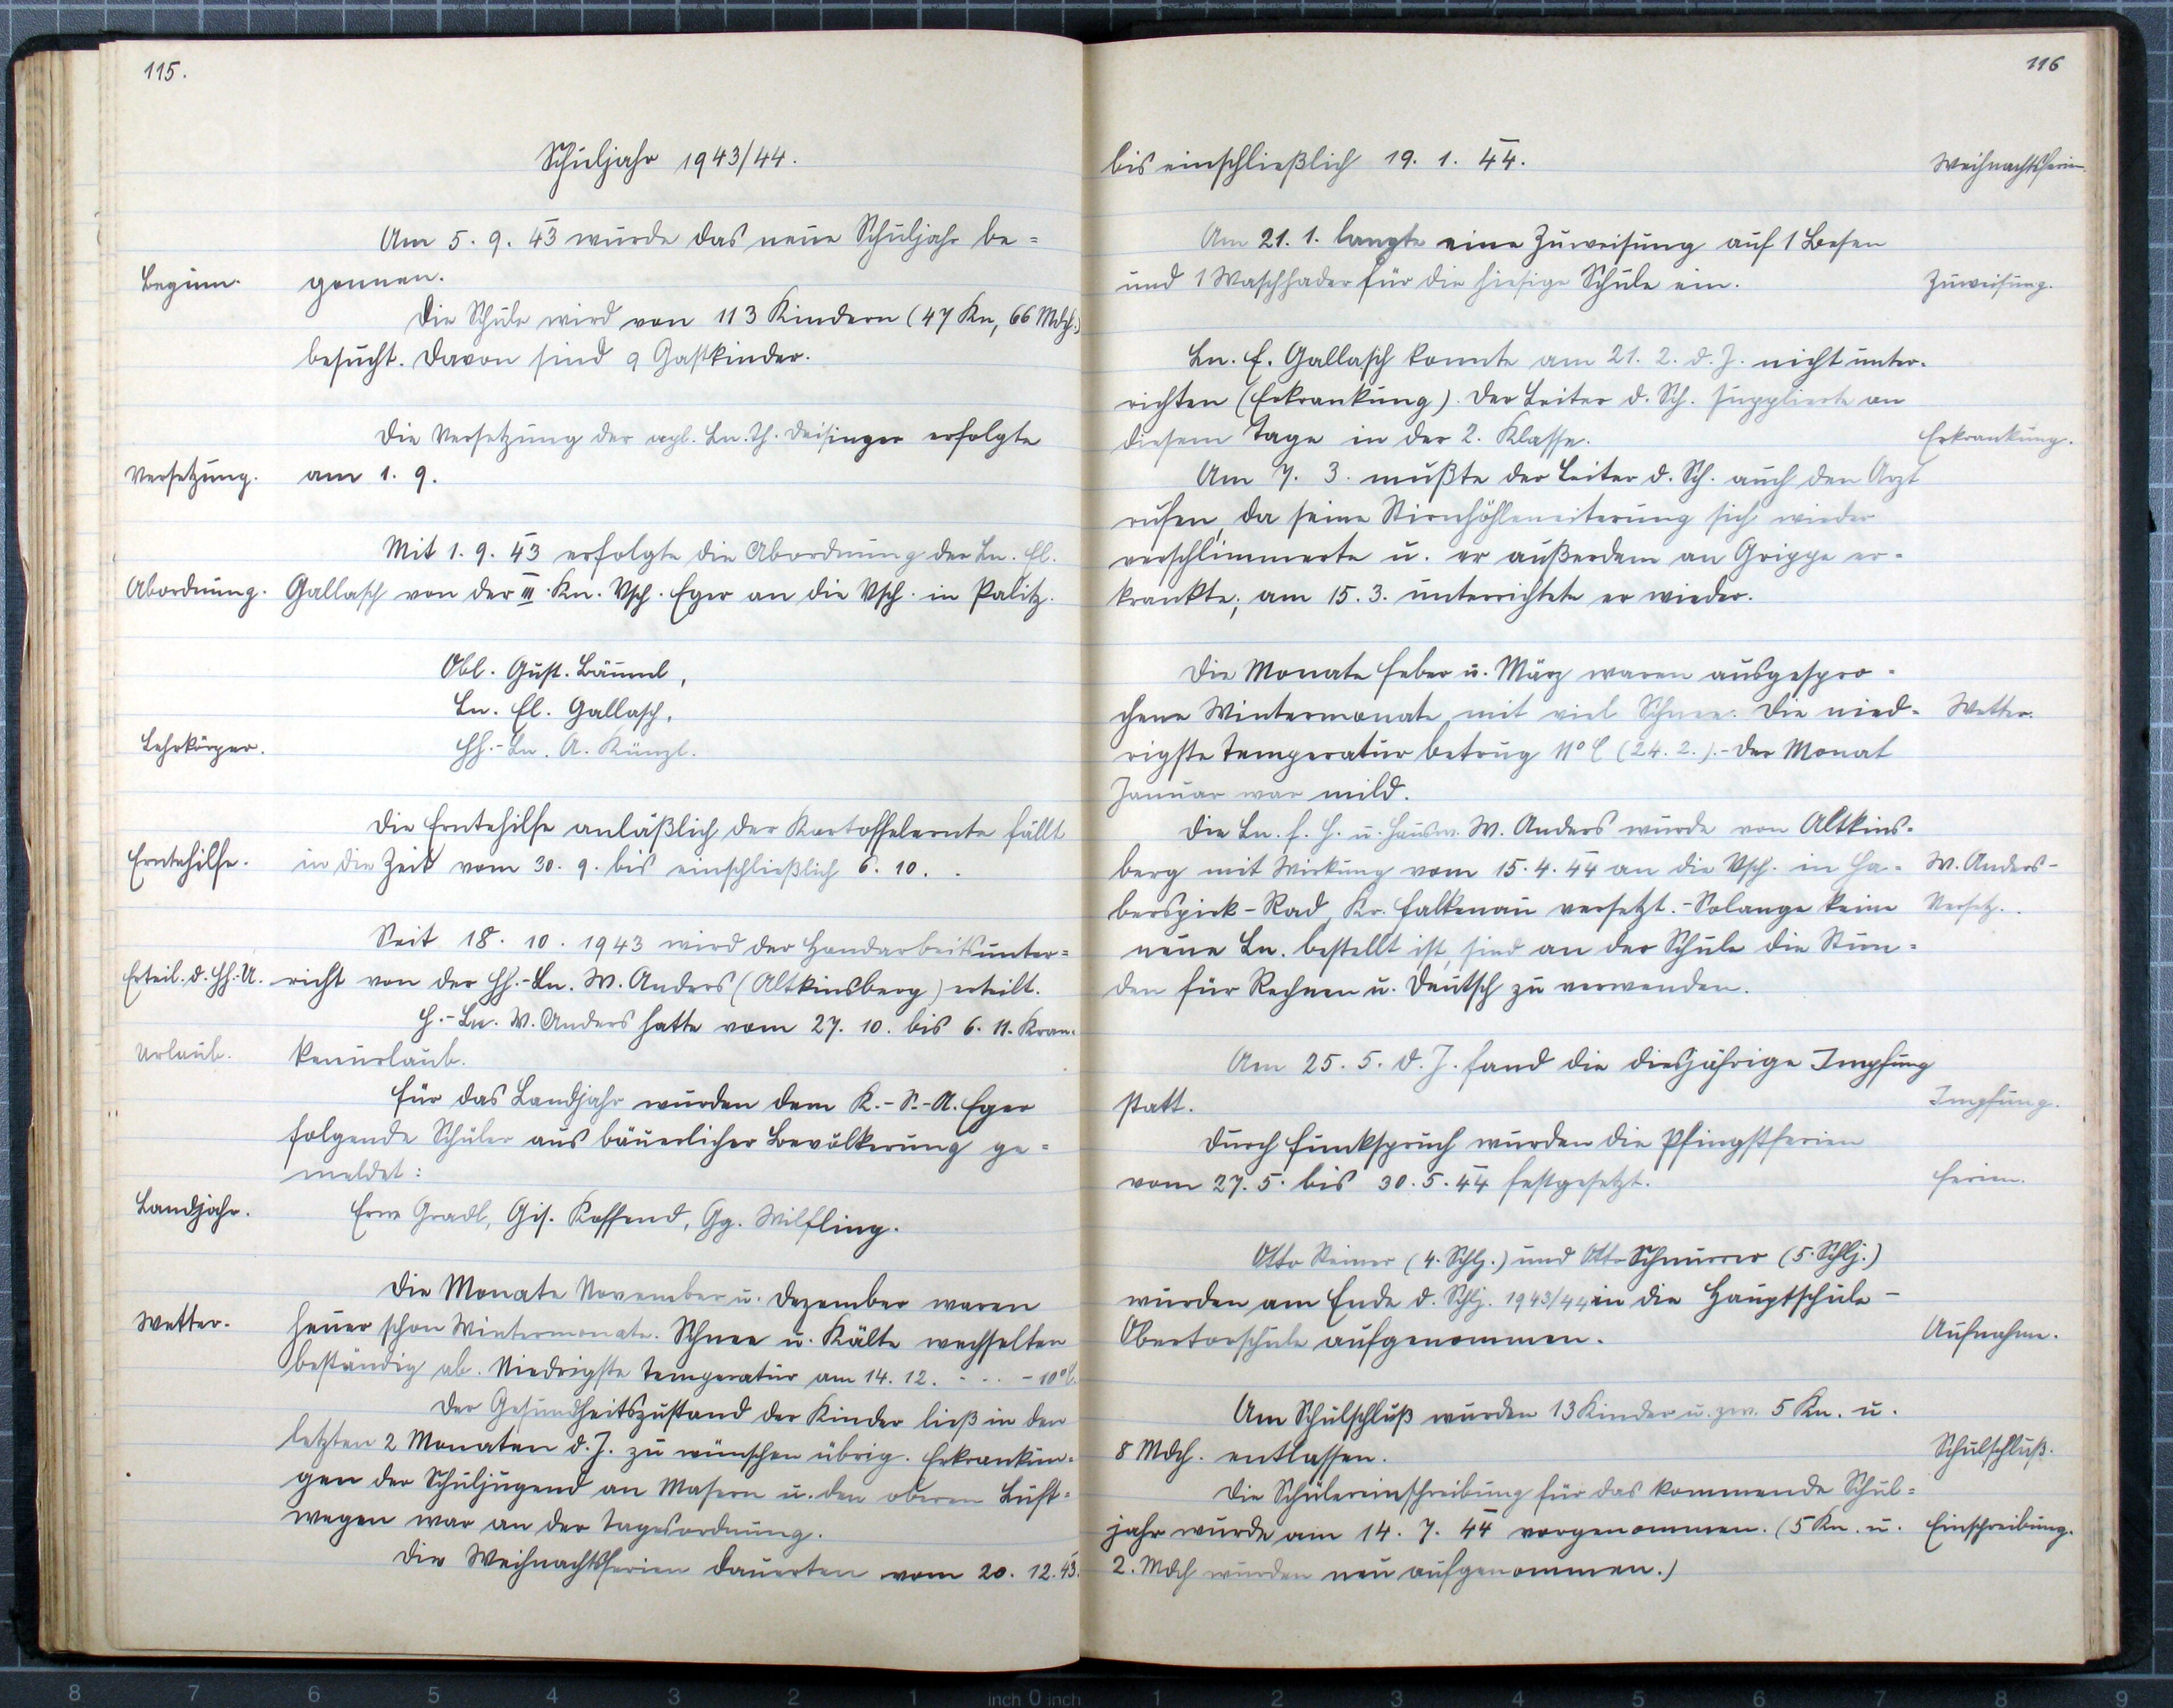 115.
Schuljahr 1943/44.
Am 5. 9. 43 wurde das neue Schuljahr be=
Beginn. gonnen.
Die Schule wird von 113 Kindern (47 Kn, 66 Mdch.)
besucht. Davon sind 9 Gastkinder.
Die Versetzung der apl. Ln. Th. Deisinger erfolgte
Versetzung. am 1. 9.
Mit 1. 9. 43 erfolgte die Abordnung der Ln. El.
Abordnung. Gallasch von der III. Kn. Vsch. Eger an die Vsch. in Palitz.
Obl. Gust. Bäuml,
Ln. El. Gallasch,
Lehrkörper. HH.-Ln. A. Künzl.
Die Erntehilfe anläßlich der Kartoffelernte fällt
Erntehilfe. in die Zeit vom 30. 9. bis einschließlich 6. 10.
Seit 18. 10. 1943 wird der Handarbeitsunter=
Erteil. d. HH.-U. richt von der HH.-Ln. W. Anders (Altkinsberg) erteilt.
H.-Ln. W. Anders hatte vom 27. 10. bis 6. 11. Kran-
Urlaub. kenurlaub.
Für das Landjahr wurden dem K.-S.-A. Eger
folgende Schüler aus bäuerlicher Bevölkerung ge=
meldet:
Landjahr. Erw. Gradl, Gis. Koffend, Gg. Wilfling.
Die Monate November u. Dezember waren
Wetter. heuer schon Wintermonate. Schnee u. Kälte wechselten
beständig ab. Niedrigste Temperatur am 14. 12. - . . -10° C.
Der Gesundheitszustand der Kinder ließ in den
letzten 2 Monaten d. J. zu wünschen übrig. Erkrankun=
gen der Schuljugend an Masern u. den oberen Luft=
wegen war an der Tagesordnung.
Die Weihnachtsferien dauerten vom 20. 12. 43.
116
bis einschließlich 19. 1. 44. Weihnachtsferien.
Am 21. 1. langte eine Zuweisung auf 1 Besen
und 1 Waschhader für die hiesige Schule ein. Zuweisung.
Ln. E. Gallasch konnte am 21. 2. d. J. nicht unter-
richten (Erkrankung). Der Leiter d. Sch. supplierte an
diesem Tage in der 2. Klasse. Erkrankung.
Am 7. 3. mußte der Leiter d. Sch. auch den Arzt
rufen, da seine Stirnhöhleneiterung sich wieder
verschlimmerte u. er außerdem an Grippe er-
krankte; am 15. 3. unterrichtete er wieder.
Die Monate Feber u. März waren ausgespro-
chene Wintermonate mit viel Schnee. Die nied- Wetter.
rigste Temperatur betrug 11° C (24. 2.).- Der Monat
Januar war mild.
Die Ln. f. H. u. Hausw. W. Anders wurde von Altkins-
berg mit Wirkung vom 15. 4. 44 an die Vsch. in Ha- W. Anders-
berspirk-Rad, Kr. Falkenau versetzt.- Solange keine Versetz.
neue Ln. bestellt ist, sind an der Schule die Stun=
den für Rechnen u. Deutsch zu verwenden.
Am 25. 5. d. J. fand die diesjährige Impfung
statt. Impfung.
Durch Funkspruch wurden die Pfingstferien
vom 27. 5. bis 30. 5. 44 festgesetzt. Ferien.
Otto Steiner (4. Schlj.) und Otto Schnurrer (5. Schlj.)
wurden am Ende d. Schlj. 1943/44 in die Hauptschule -
Obertorschule aufgenommen. Aufnahme.
Am Schulschluß wurden 13 Kinder u. zw. 5 Kn. u.
8 Mdch. entlassen. Schulschluß.
Die Schülereinschreibung für das kommende Schul=
jahr wurde am 14. 7. 44 vorgenommen. (5 Kn. u. Einschreibung.
2. Mdch wurden neu aufgenommen.)
8 7 6 5 4 3 2 1 inch 0 inch 1 2 3 4 5 6 7 8 9